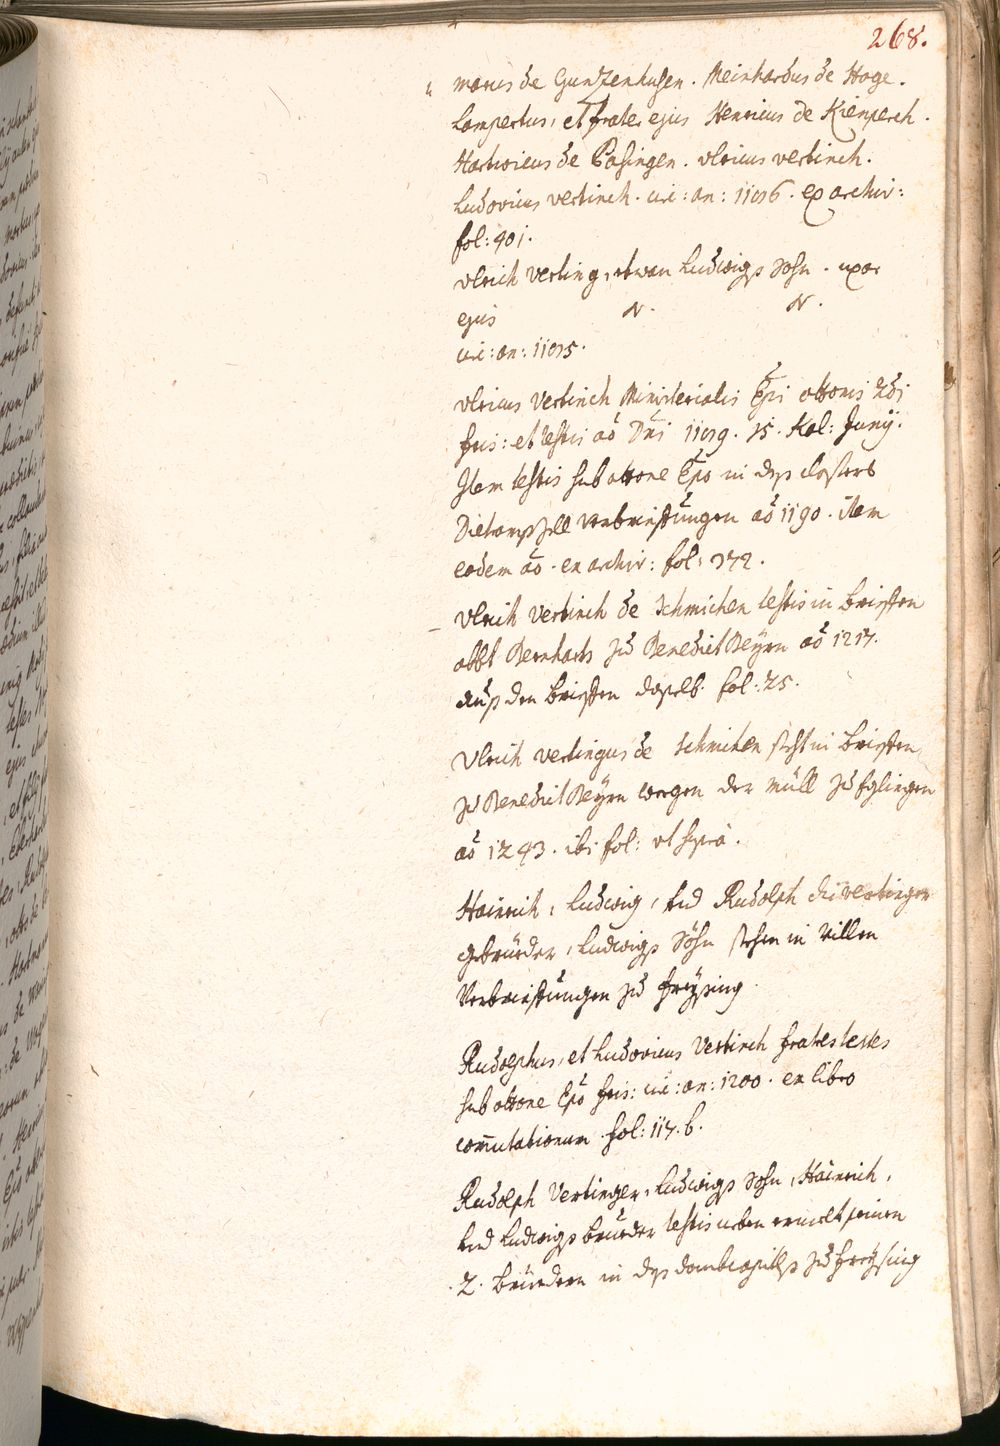 268.
marus de Guntzenhusen. Meinhardus de Hage.
Lampertus, et frater ejus Henricus de Kienperch.
Hartwicus de Pasingen. Ulricus vertinch.
Ludovicus vertinch. circ: an: 1196. ex archiv:
fol: 401.
Ulrich verting, etwan Ludwigs Sohn. uxor
ejus N. N.
circ: an: 1195.
Ulricus vertinch Ministerialis Epi ottonis 2di
fris: et testis aō Dni 1189. 15. Kal: Junij.
Item testis sub ottone Epo in dess Closters
Dietramszell verbrieffungen aō 1190. item
eodem aō. ex archiv: fol: 372.
Ulrich vertinch de Schmichen testis in brieffen
abbt Bernhards zu Benedict Beyrn aō 1217.
auß den brieffen daselb. fol: 25.
Ulrich vertingus de Schmichen steht in brieffen
zu Benedict Beyrn wegen der Müll zu Eglingen
aō 1243. ibi fol: ut supra.
Hainrich, Ludwig, und Rudolph die vertinger
gebrüeder, Ludwigs Söhn stehen in villen
Verbrieffungen zu Freysing.
Rudolphus, et Ludovicus Vertinch fratres testes
sub ottone Epo fris: circ: an: 1200. ex libro
com̄utationum fol: 117. b.
Rudolph Vertinger, Ludwigs Sohn, Hainrich,
und Ludwigs brüeder testis neben ermelt seinen
2. brüedern in dess dombcapitls zu Freysing